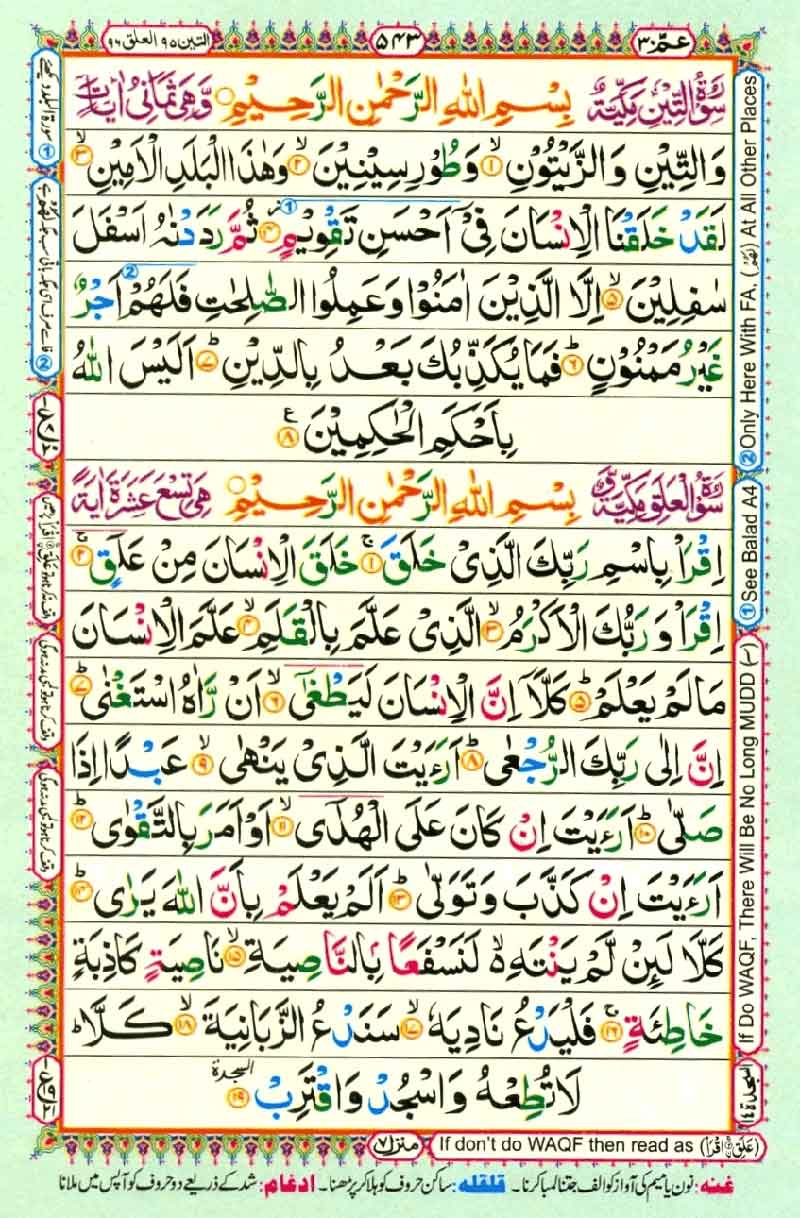 التين ٩٥ العلق ٩٦
٥٤٣
عمّ ٣٠
سُوْرَةُ التِّيْنِ مَكِّيَّةٌ بِسْمِ اللهِ الرَّحْمٰنِ الرَّحِيْمِ وَهِىَ ثَمَانِىْ اٰيَاتٍ
وَالتِّيْنِ وَالزَّيْتُوْنِ ۙ﴿۱﴾ وَطُوْرِ سِيْنِيْنَ ۙ﴿۲﴾ وَهٰذَا الْبَلَدِ الْاَمِيْنِ ۙ﴿۳﴾
لَقَدْ خَلَقْنَا الْاِنْسَانَ فِىْۤ اَحْسَنِ تَقْوِيْمٍ ﴿۴﴾ ثُمَّ رَدَدْنٰهُ اَسْفَلَ
سٰفِلِيْنَ ۙ﴿۵﴾ اِلَّا الَّذِيْنَ اٰمَنُوْا وَعَمِلُوا الصّٰلِحٰتِ فَلَهُمْ اَجْرٌ
غَيْرُ مَمْنُوْنٍ ؕ﴿۶﴾ فَمَا يُكَذِّبُكَ بَعْدُ بِالدِّيْنِ ؕ﴿۷﴾ اَلَيْسَ اللهُ
بِاَحْكَمِ الْحٰكِمِيْنَ ﴿۸﴾ ع
سُوْرَةُ الْعَلَقِ مَكِّيَّةٌ بِسْمِ اللهِ الرَّحْمٰنِ الرَّحِيْمِ هِىَ تِسْعَ عَشْرَةَ اٰيَةً
اِقْرَاْ بِاسْمِ رَبِّكَ الَّذِىْ خَلَقَ ۚ﴿۱﴾ خَلَقَ الْاِنْسَانَ مِنْ عَلَقٍ ۚ﴿۲﴾
اِقْرَاْ وَرَبُّكَ الْاَكْرَمُ ۙ﴿۳﴾ الَّذِىْ عَلَّمَ بِالْقَلَمِ ۙ﴿۴﴾ عَلَّمَ الْاِنْسَانَ
مَا لَمْ يَعْلَمْ ؕ﴿۵﴾ كَلَّاۤ اِنَّ الْاِنْسَانَ لَيَطْغٰٓى ۙ﴿۶﴾ اَنْ رَّاٰهُ اسْتَغْنٰى ؕ﴿۷﴾
اِنَّ اِلٰى رَبِّكَ الرُّجْعٰى ؕ﴿۸﴾ اَرَءَيْتَ الَّذِىْ يَنْهٰى ۙ﴿۹﴾ عَبْدًا اِذَا
صَلّٰى ؕ﴿۱۰﴾ اَرَءَيْتَ اِنْ كَانَ عَلَى الْهُدٰٓى ۙ﴿۱۱﴾ اَوْ اَمَرَ بِالتَّقْوٰى ؕ﴿۱۲﴾
اَرَءَيْتَ اِنْ كَذَّبَ وَتَوَلّٰى ؕ﴿۱۳﴾ اَلَمْ يَعْلَمْ بِاَنَّ اللهَ يَرٰى ؕ﴿۱۴﴾
كَلَّا لَئِنْ لَّمْ يَنْتَهِ ۙ لَنَسْفَعًۢا بِالنَّاصِيَةِ ۙ﴿۱۵﴾ نَاصِيَةٍ كَاذِبَةٍ
خَاطِئَةٍ ۚ﴿۱۶﴾ فَلْيَدْعُ نَادِيَهٗ ۙ﴿۱۷﴾ سَنَدْعُ الزَّبَانِيَةَ ۙ﴿۱۸﴾ كَلَّا ؕ
لَا تُطِعْهُ وَاسْجُدْ وَاقْتَرِبْ ﴿۱۹﴾ السجدة
② Only Here With FA, (لَهُمْ) At All Other Places
① See Balad A4
If Do WAQF, There Will Be No Long MUDD (~)
السجدة ١٤
منزل ۷
If don't do WAQF then read as (عَلَقِ نِ اقْرَاْ)
غنه: نون یا میم کی آواز کو الف جتنا لمبا کرنا۔ قلقله: ساکن حروف کو ہلا کر پڑھنا۔ ادغام: شد کے ذریعے دو حروف کو آپس میں ملانا